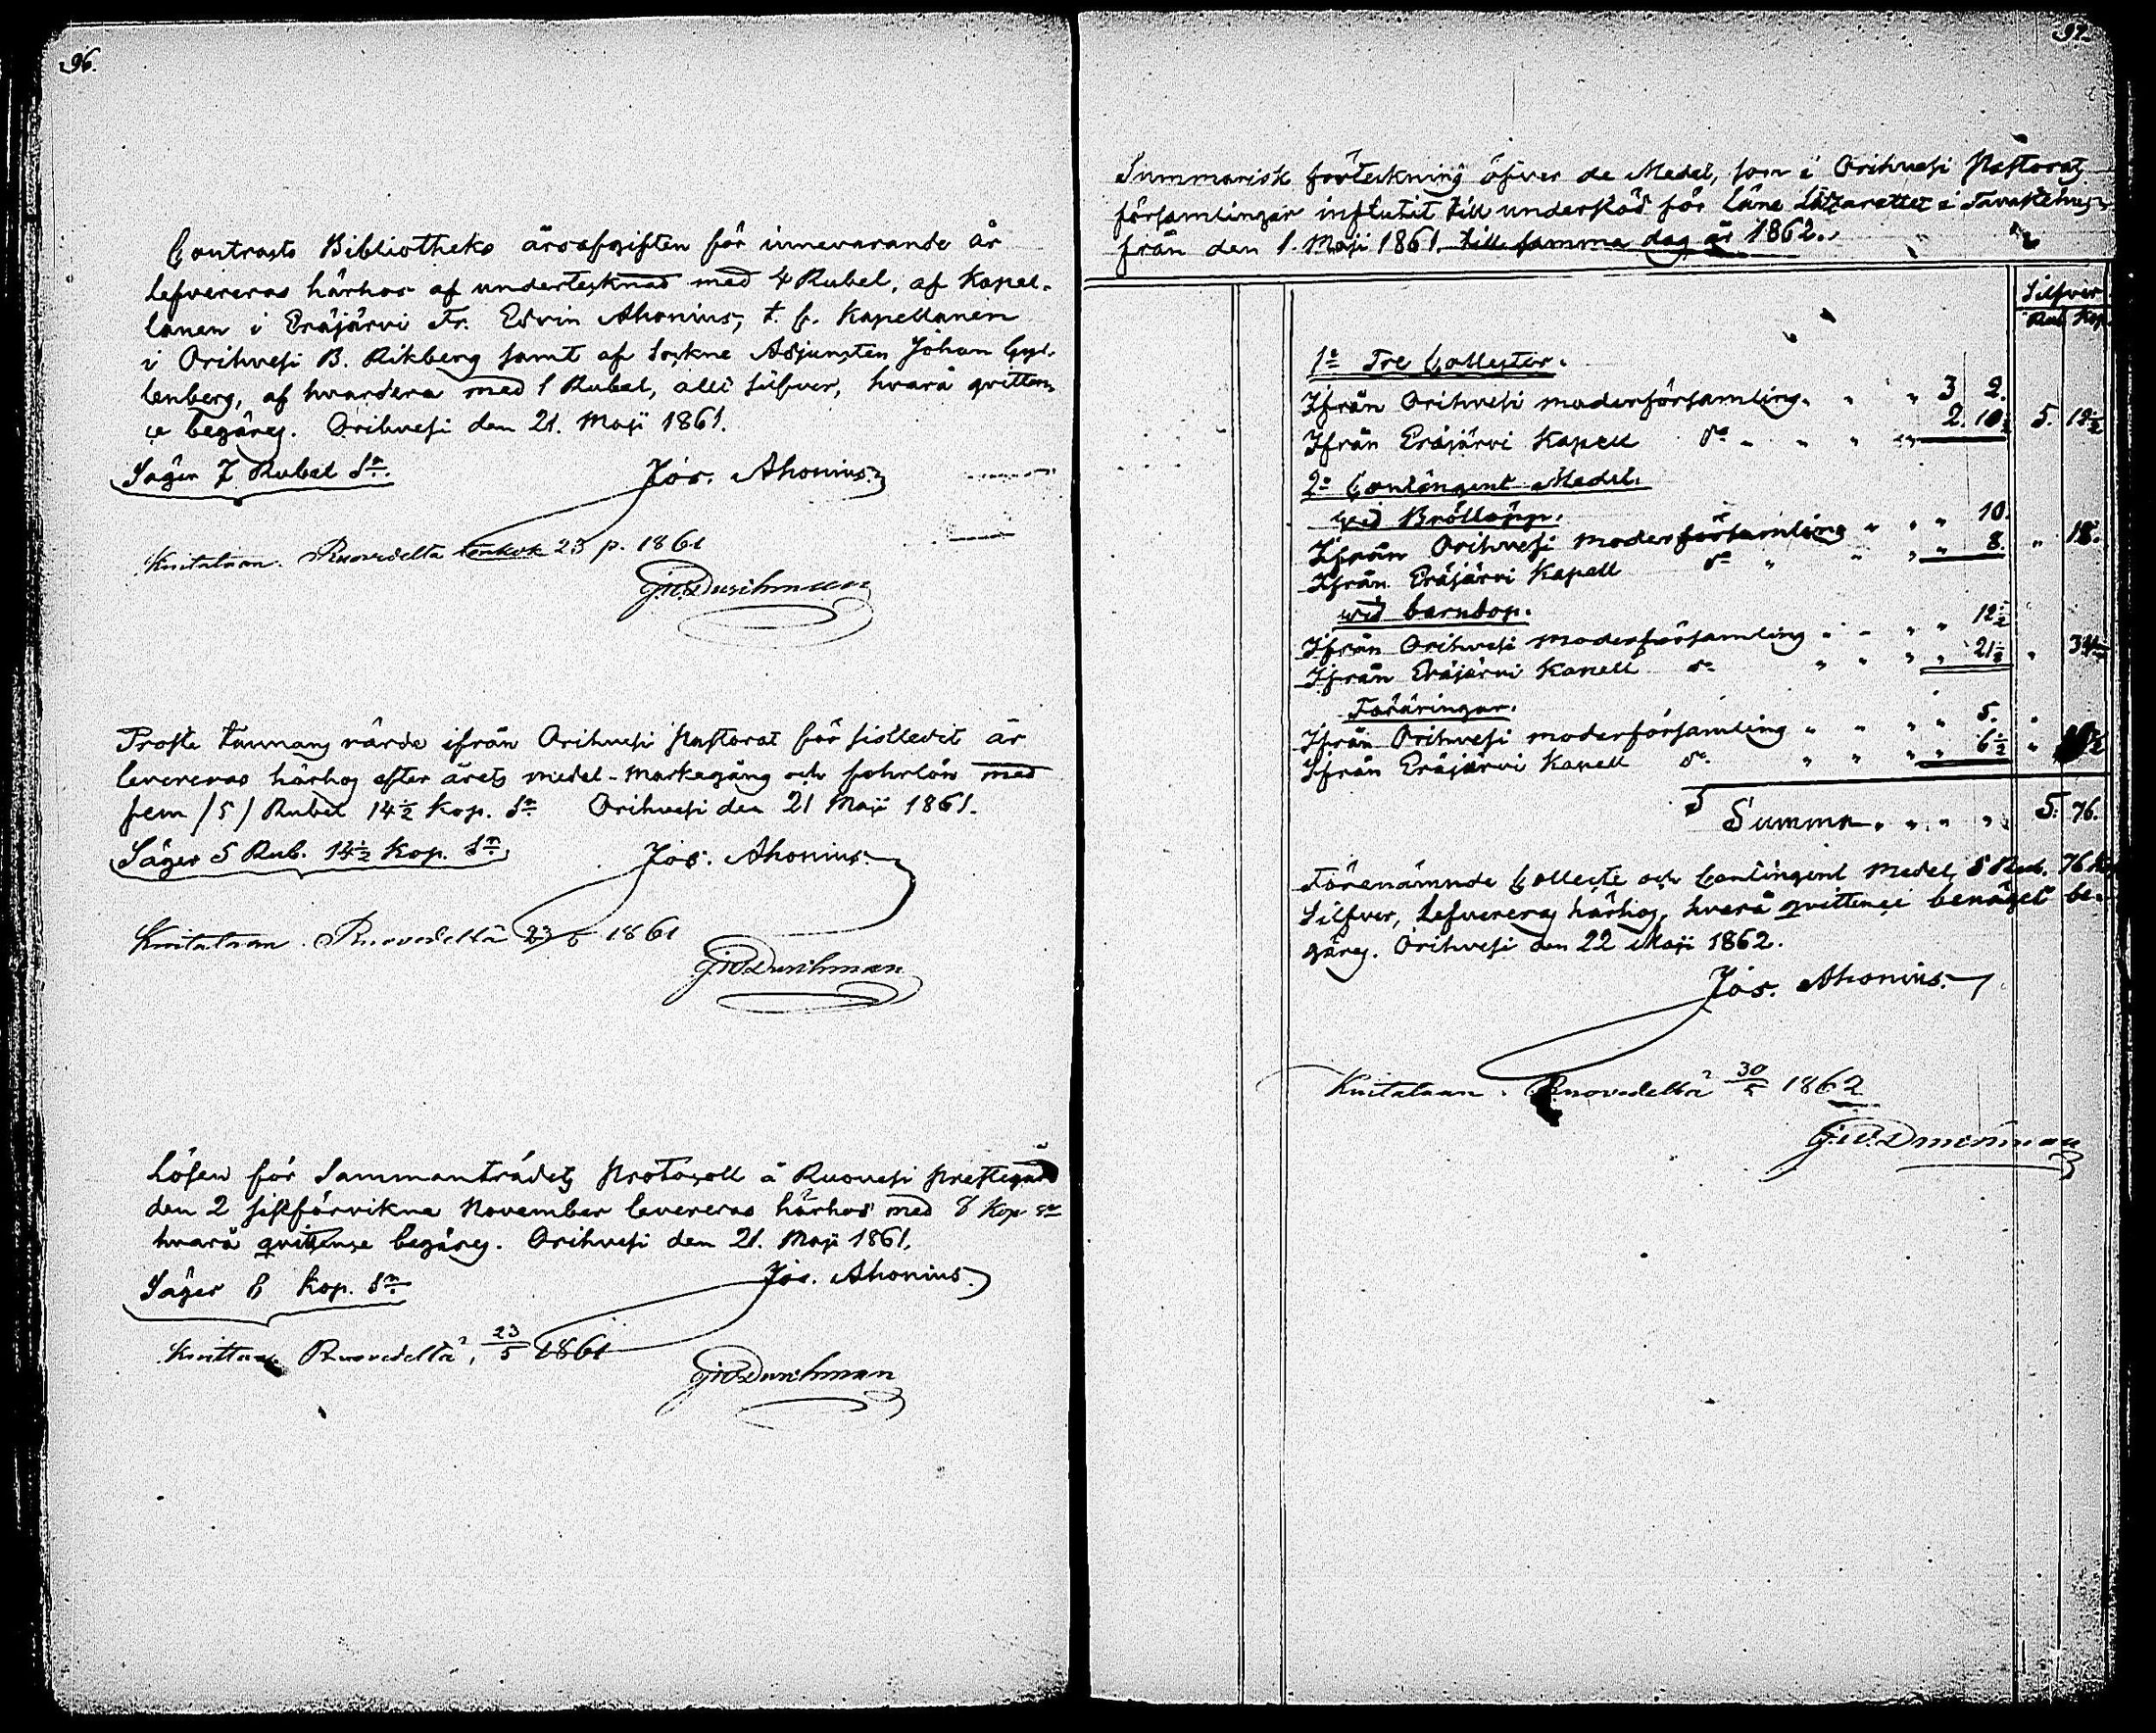 96.
Contracts Bibliotheks årsafgiften för innevarande år
lefvereras härhos af undertecknad med 4 Rubel, af Kapel-
lanen i Eräjärvi Fr. Edvin Ahonius, t. f. Kapellanen
i Orihvesi B. Rikberg samt af Sockne Adjuncten Johan Gyl-
lenberg, af hvardera med 1 Rubel, allt silfver, hvarå qvitten-
ce begäres. Orihvesi den 21. Maji 1861.
Säger 7 Rubel Sr.
Jos. Ahonius.
Kuitataan. Ruovedeltä 23 p. 1861
Proste Tunnans värde ifrån Orihvesi Pastorat för sistledit år
levereras härhos efter årets medel-Markegång och forlön med
fem /5/ Rubel 14½ Kop. Sr Orihvesi den 21 Maji 1861.
Säger 5 Rub. 14½ Kop. Sr
Jos. Ahonius.
Kuitataan. Ruovedeltä 23/5 1861
G.W. Durchman
Lösen för Sammanträdets Protocoll å Ruovesi Prestegård
den 2 sistförvikne November levereras härhos med 8 Kop Sr
hvarå qvittence begäres. Orihvesi den 21. Maji 1861.
Säger 8 Kop. Sr
Jos. Ahonius.
Ruovedeltä, 23/5 1861
G.W. Durchman
97.
Summarisk förteckning öfver de Medel, som i Orihvesi Pastorats
församlingar influtit till understöd för Läne Lazarettet i Tavastehus,
från den 1. Maji 1861 till samma dag år 1862.
Silfver
Rub Kop.
1o Tre Collecter.
Ifrån Orihvesi moderförsamling. " " 3 2.
Ifrån Eräjärvi Kapell do " " " " 2. 10½ 5. 12½
2o Contingent Medel.
vid Bröllopp.
Ifrån Orihvesi moderförsamling " " " 10.
Ifrån Eräjärvi Kapell do " " " " 8. " 18.
vid barndop.
Ifrån Orihvesi moderförsamling " " " " 12½
Ifrån Eräjärvi Kapell do " " " " 21½ " 34
Föräringar.
Ifrån Orihvesi moderförsamling " " " " 5.
Ifrån Eräjärvi Kapell do " " " " 6½ "
Summa " " " " 5. 76.
Förenämnde Collecte och Contingent Medel, 5 Rub. 76 Kop
Silfver, lefvereras härhos, hvarå qvittence benäget be-
gäres. Orihvesi den 22 Maji 1862.
Jos. Ahonius.
Kuitataan. Ruovedeltä 30/5 1862
G.W. Durchman